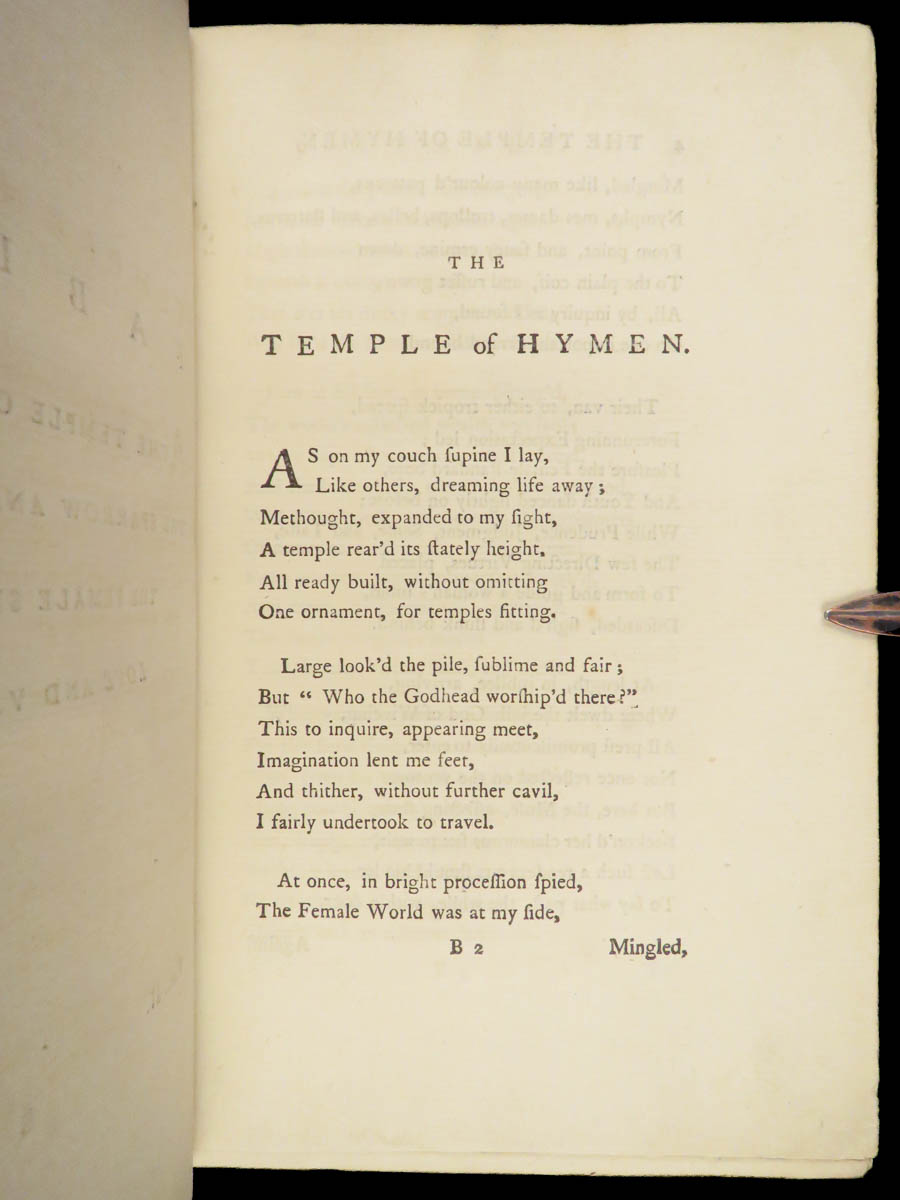 THE
TEMPLE of HYMEN.
AS on my couch ſupine I lay,
Like others, dreaming life away;
Methought, expanded to my ſight,
A temple rear'd its ſtately height.
All ready built, without omitting
One ornament, for temples fitting.
Large look'd the pile, ſublime and fair;
But “ Who the Godhead worſhip'd there?”
This to inquire, appearing meet,
Imagination lent me feet,
And thither, without further cavil,
I fairly undertook to travel.
At once, in bright proceſſion ſpied,
The Female World was at my ſide,
B 2 Mingled,